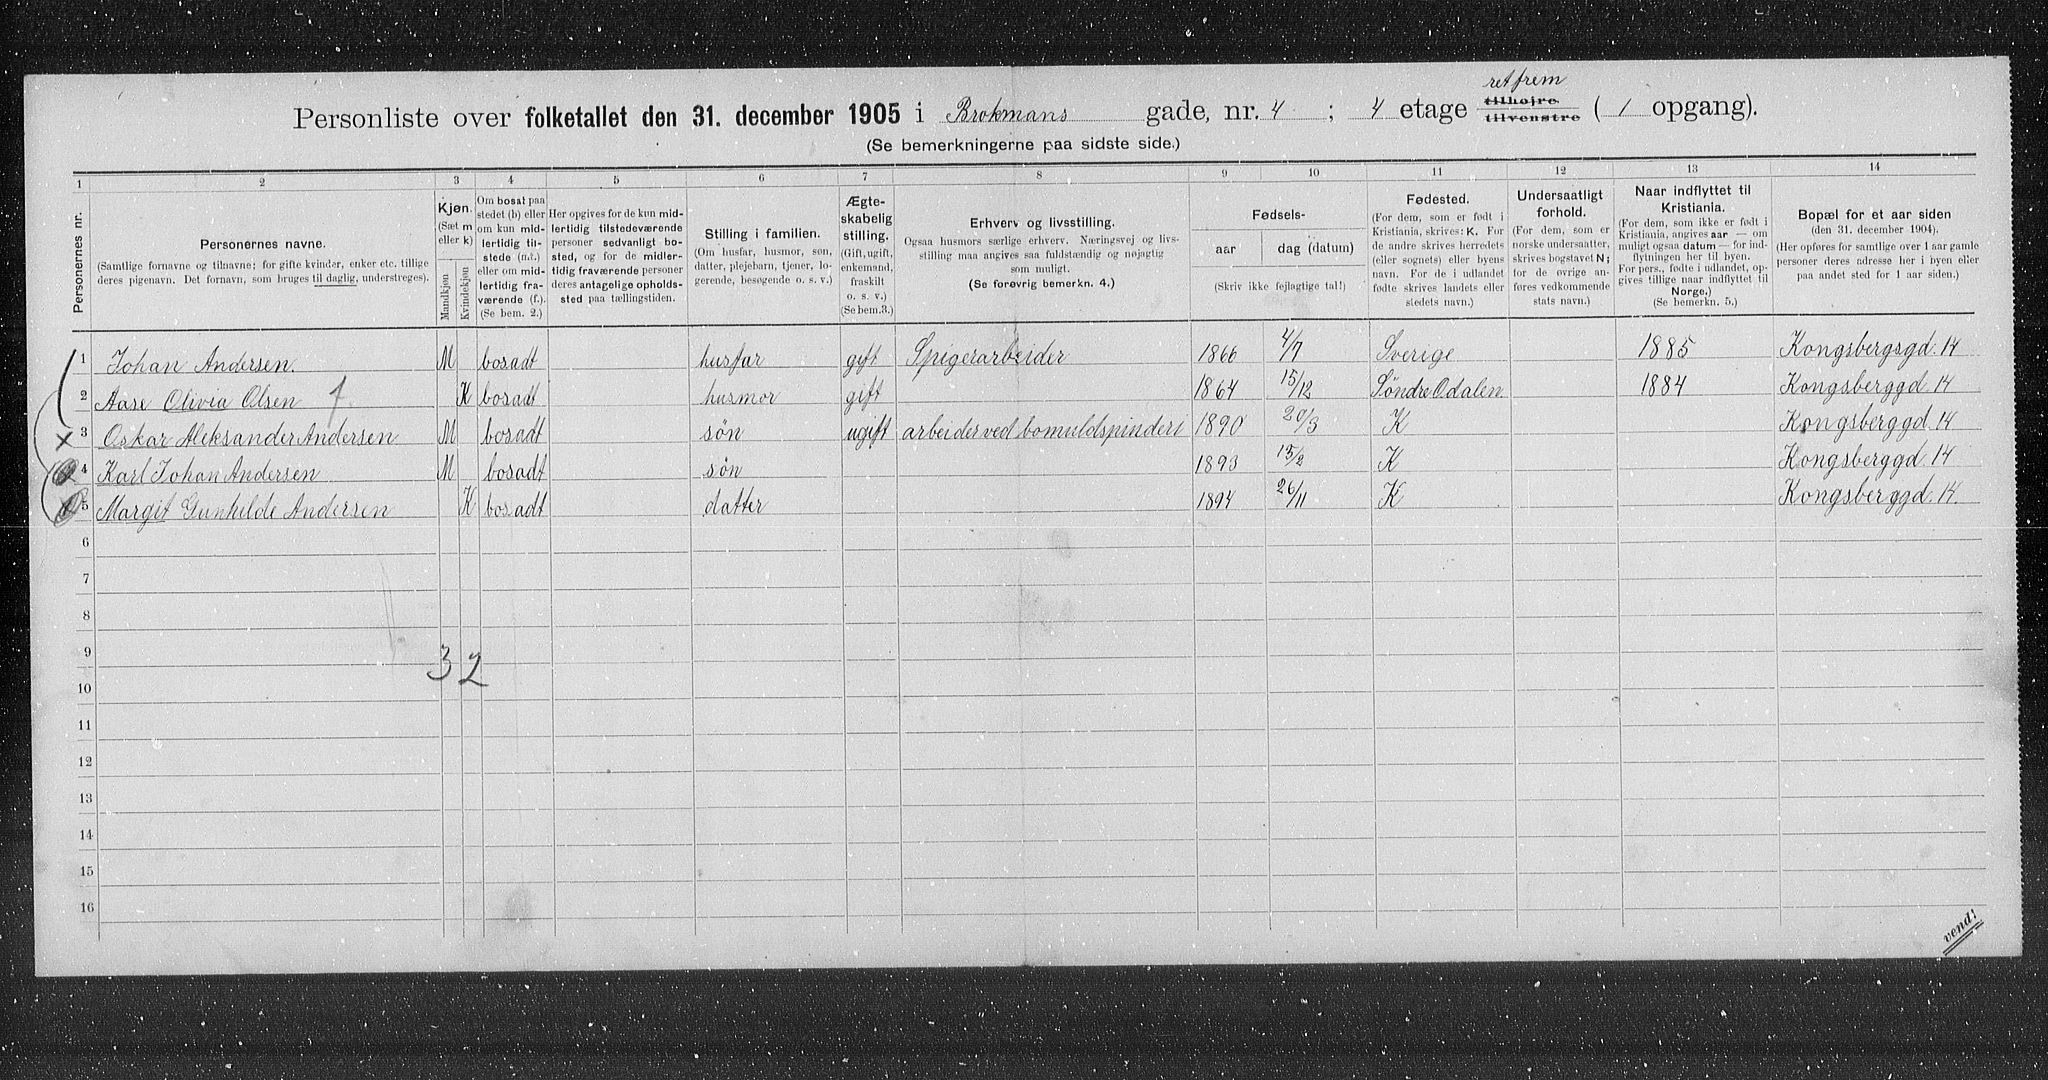 retfrem
Personliste over folketallet den 31. december 1905 i Brokmans gade, nr. 4 ; 4 etage tilhøjre tilvenstre ( 1 opgang).
(Se bemerkningerne paa sidste side.)
1 2 3 4 5 6 7 8 9 10 11 12 13 14
Personernes nr.
Personernes navne.
(Samtlige fornavne og tilnavne; for gifte kvinder, enker etc. tillige
deres pigenavn. Det fornavn, som bruges til daglig, understreges).
Kjøn.
(Sæt m
eller k)
Mandkjøn
Kvindekjøn
Om bosat paa
stedet (b) eller
om kun mid-
lertidig til-
stede (m.t.)
eller om mid-
lertidig fra-
værende (f.).
(Se bem. 2.)
Her opgives for de kun mid-
lertidig tilstedeværende
personer sedvanligt bo-
sted, og for de midler-
tidig fraværende personer
deres antagelige opholds-
sted paa tællingstiden.
Stilling i familien.
(Om husfar, husmor, søn,
datter, plejebarn, tjener, lo-
gerende, besøgende o. s. v.)
Ægte-
skabelig
stilling.
(Gift, ugift,
enkemand,
fraskilt
o. s. v.)
(Se bem.3.)
Erhverv og livsstilling.
Ogsaa husmors særlige erhverv. Næringsvej og livs-
stilling maa angives saa fuldstændig og nøjagtig
som muligt.
(Se forøvrig bemerkn. 4.)
Fødsels-
aar dag (datum)
(Skriv ikke fejlagtige tal!)
Fødested.
(For dem, som er født i
Kristiania, skrives: K. For
de andre skrives herredets
(eller sognets) eller byens
navn. For de i udlandet
fødte skrives landets eller
stedets navn.)
Undersaatligt
forhold.
(For dem, som er
norske undersaatter,
skrives bogstavet N;
for de øvrige an-
føres vedkommende
stats navn.)
Naar indflyttet til
Kristiania.
(For dem, som ikke er født i
Kristiania, angives aar — om
muligt ogsaa datum — for ind-
flytningen her til byen.
For pers., fødte i udlandet, op-
gives tillige naar indflyttet til
Norge.)
(Se bemerkn. 5.)
Bopæl for et aar siden
(den 31. december 1904).
(Her opføres for samtlige over 1 aar gamle
personer deres adresse her i byen eller
paa andet sted for 1 aar siden.)
1 Johan Andersen. M bosadt husfar gift Spigerarbeider 1866 4/7 Sverige 1885 Kongsbergsgd. 14
2 Aase Olivia Olsen K bosadt husmor gift 1864 15/12 Søndre Odalen 1884 Kongsberggd. 14
x 3 Oskar Aleksander Andersen M bosadt søn ugift arbeider ved bomuldspinderi 1890 20/3 K Kongsberggd. 14
4 Karl Johan Andersen M bosadt søn 1893 15/2 K Kongsberggd. 14
5 Margit Gunhilde Andersen K bosadt datter 1894 26/11 K Kongsberggd. 14.
6
7
8
9
3 2
10
11
12
13
14
15
16
vend!